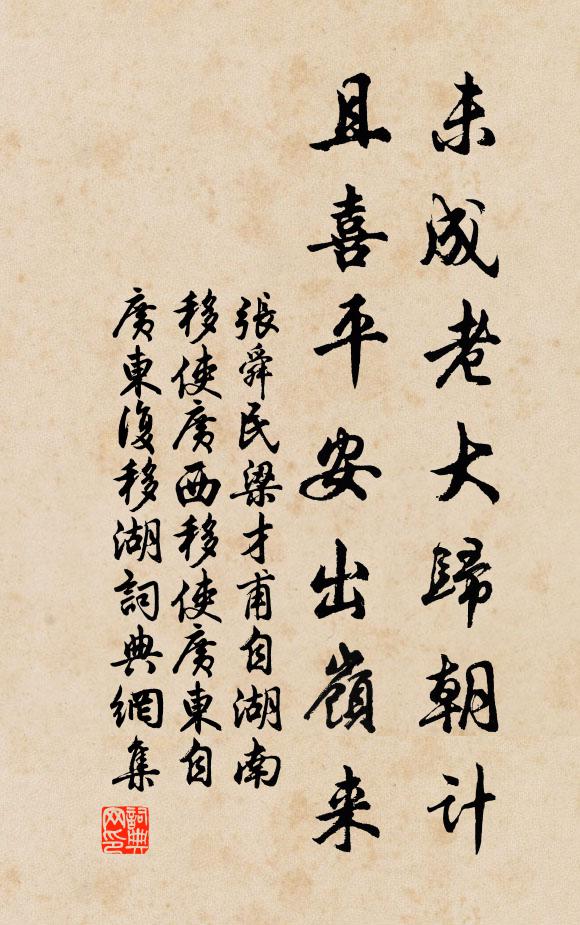 未成老大歸朝計
且喜平安出嶺来
張舜民梁才甫自湖南
移使廣西移使廣東自
廣東復移湖詞典網集
詞典网印